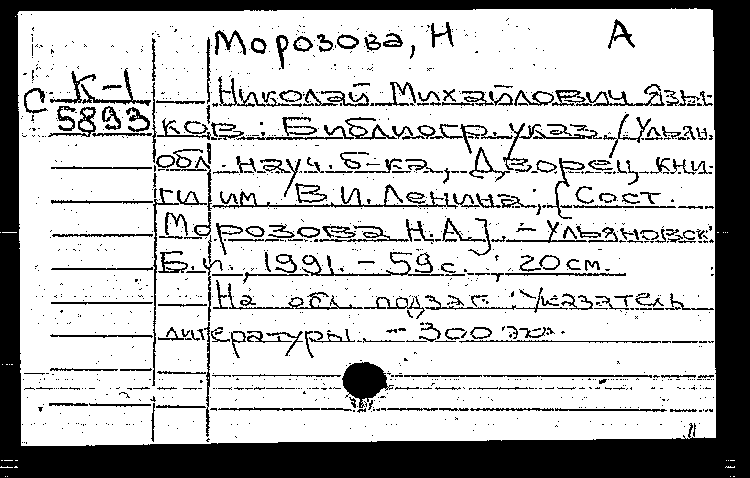 Морозова, Н А
С К-1
5893
Николай Михайлович Язы-
ков: Библиогр. указ. / Ульян.
обл. науч. б-ка, Дворец кни-
ги им. В.И. Ленина; [Сост.
Морозова Н.А.]. - Ульяновск:
Б.и., 1991. - 59 с.; 20 см.
На обл. подзаг.: Указатель
литературы. - 300 экз.